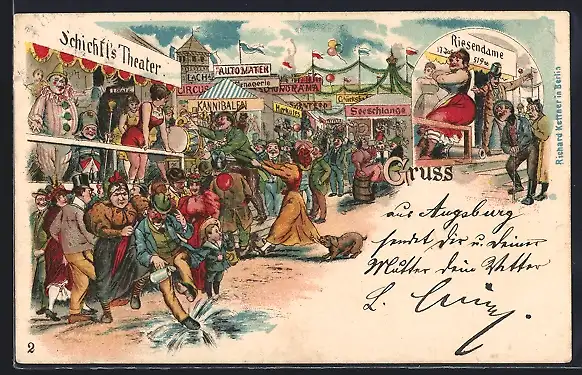 Schichtl's Theater
LACH-
AUTOMATEN
CIRCUS
Menagerie
PANORAMA
KANNIBALEN
Glückshafen
Seeschlange
Riesendame
17 Jahr
519
Richard Kettner in Berlin
Gruss
aus Augsburg
sendet Dir u. Deiner
Mutter dein Vetter
L.
2